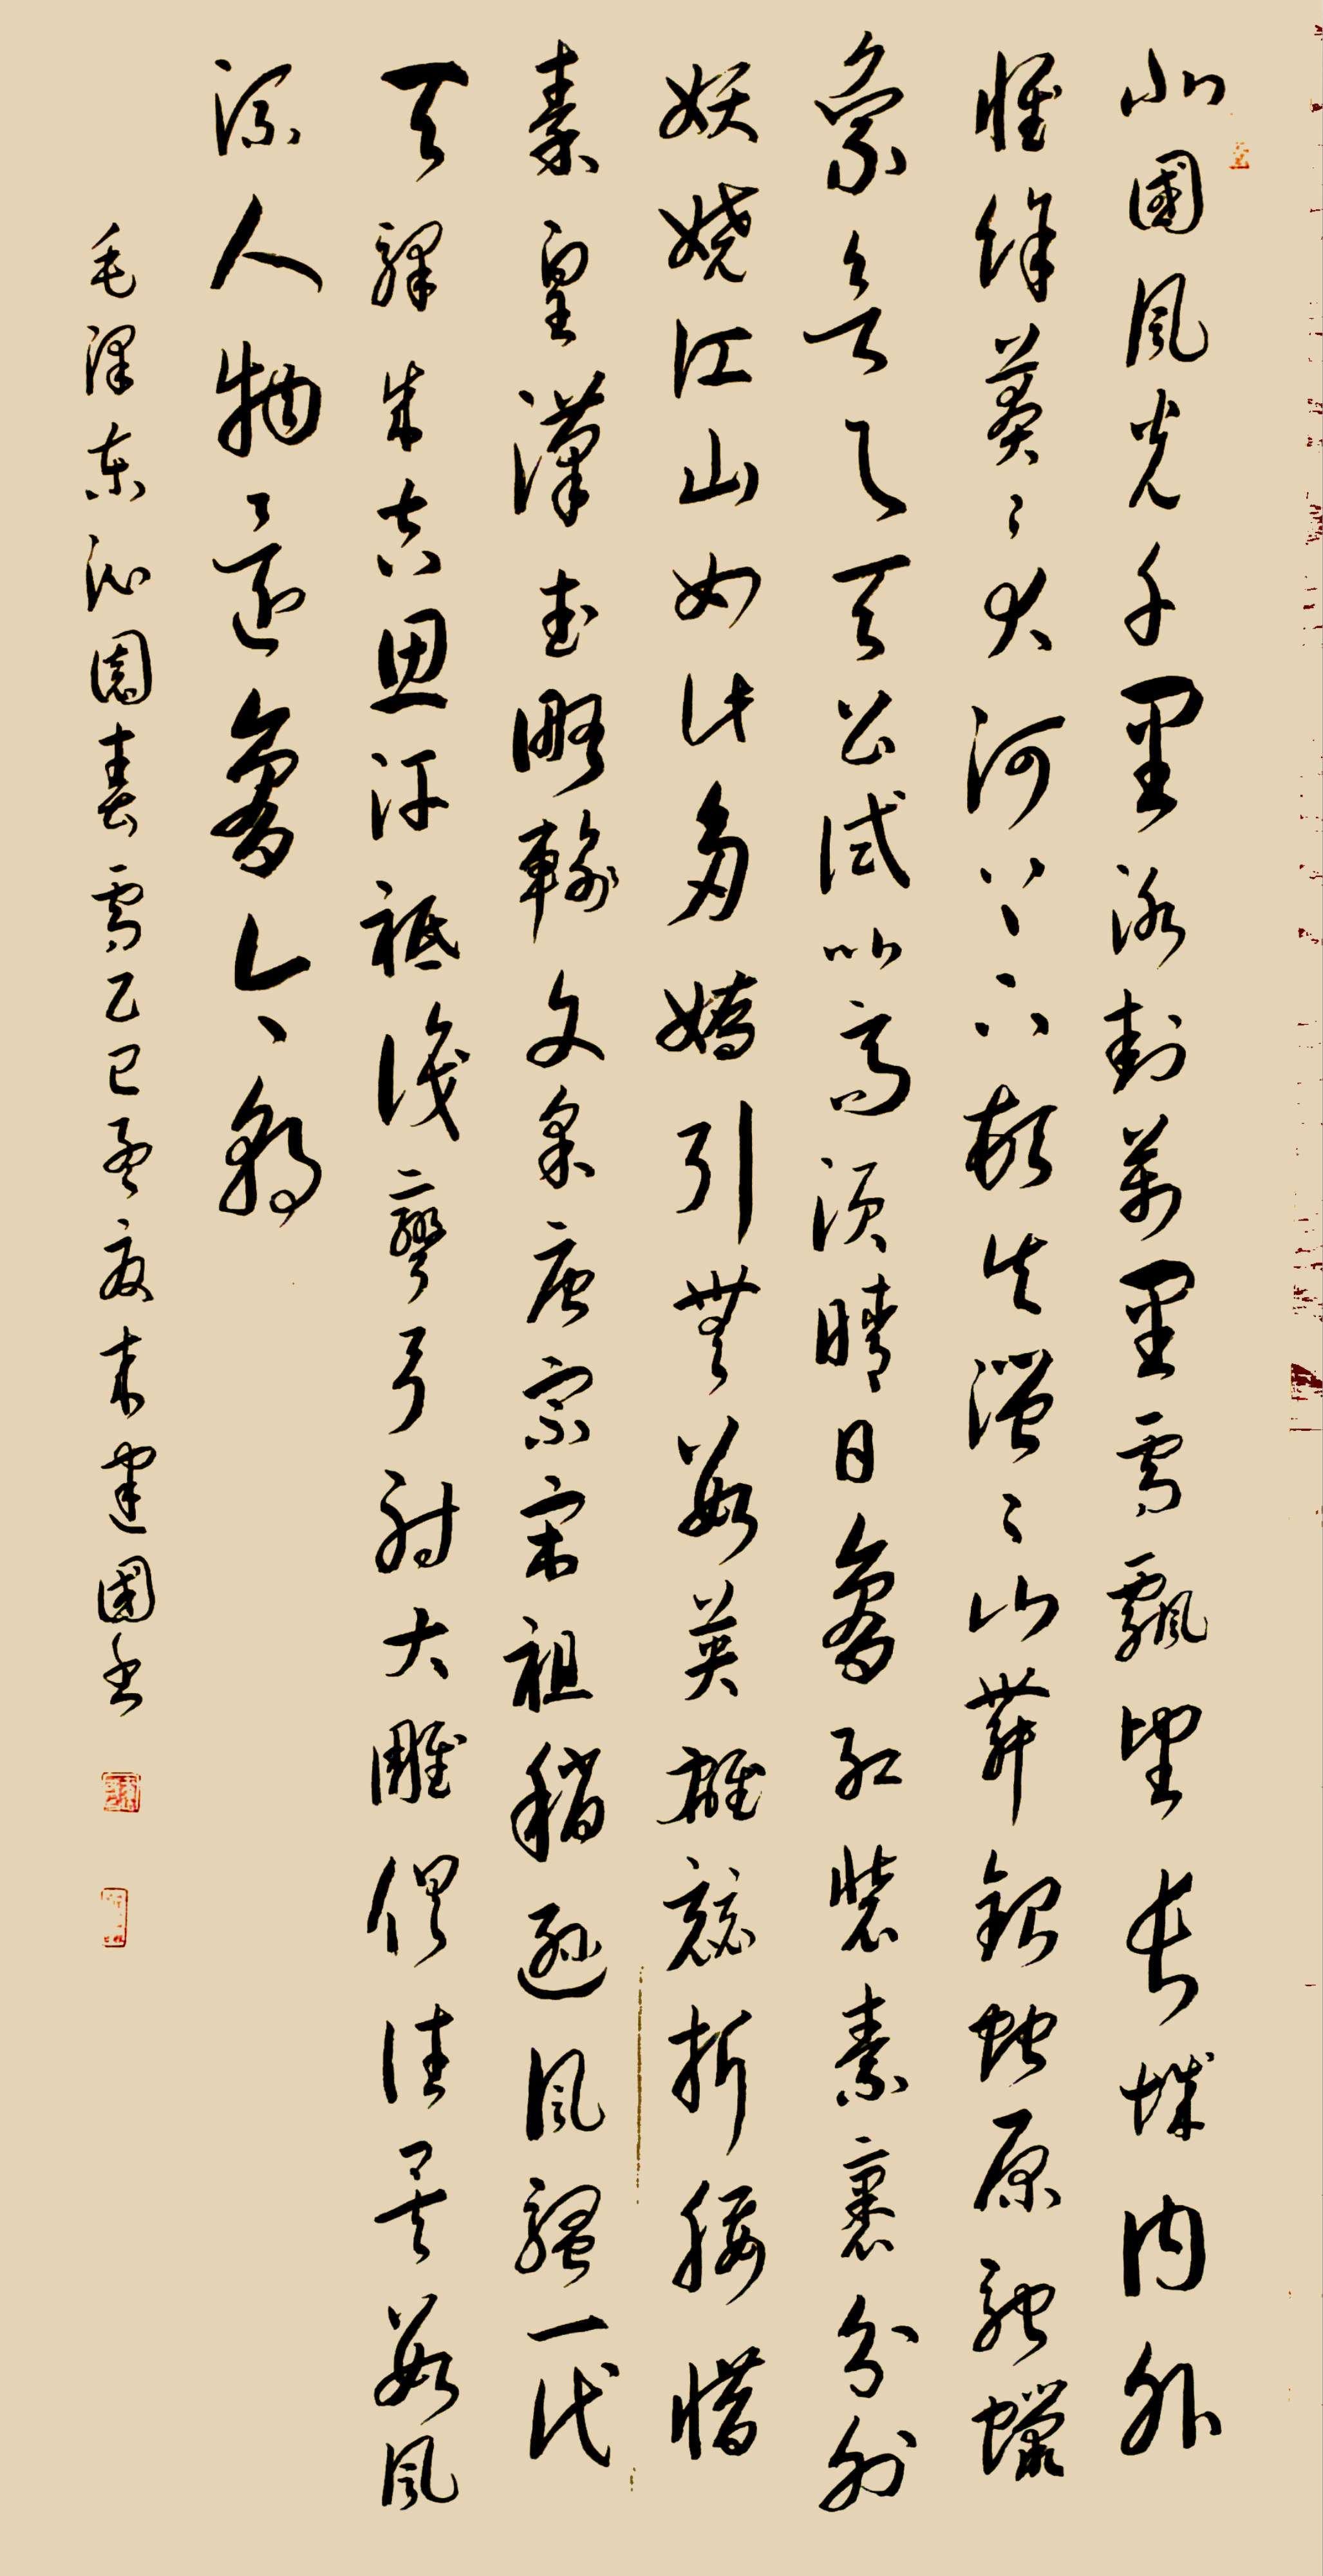 北國風光千里冰封萬里雪飄望長城內外
惟餘莽々大河上下頓失滔々山舞銀蛇原馳蠟
象欲與天公試比高須晴日看紅裝素裹分外
妖嬈江山如此多嬌引無數英雄競折腰惜
秦皇漢武略輸文采唐宗宋祖稍遜風騷一代
天驕成吉思汗祇識彎弓射大雕俱往矣數風
流人物還看今朝
毛澤東沁園春雪乙巳孟夏朱建國書